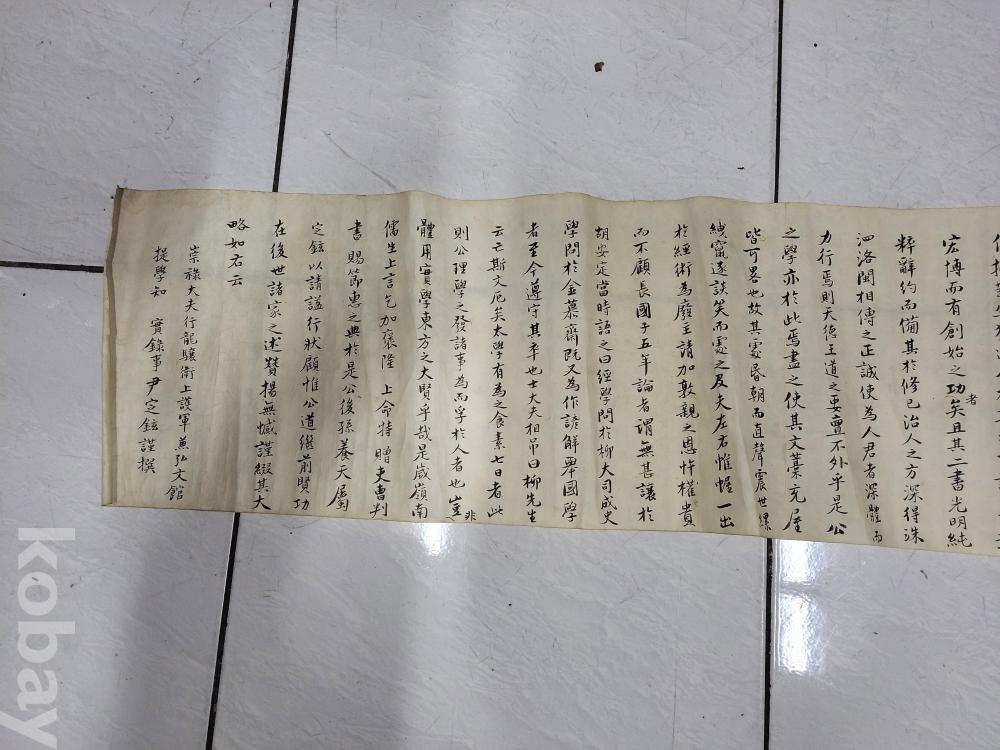 宏博而有創始之功者矣且其二書光明純
粹辭約而備其於修己治人之方深得洙
泗洛閩相傳之正誠使為人君者深體而
力行焉則天德王道之要亶不外乎是公
之學亦於此焉盡之使其文藁充屋
皆可畧也故其處昏朝而直聲震世縲
絏竄逐談笑而處之及夫左右惟幄一出
於經術為廢主請加敦親之恩忤權貴
而不顧長國子五年論者謂無甚讓於
胡安定當時語之曰經學問於柳大司成史
學問於金慕齋旣又為作諺解舉國學
者至今遵守其率也士大夫相吊曰柳先生
云亡斯文厄矣太學有為之食素七日者此
則公理學之發諸事為而孚於人者也豈非
體用實學東方之大賢乎哉是歲嶺南
儒生上言乞加褒隆 上命特贈吏曹判
書 賜節惠之典於是公後孫養天屬
定鉉以請謚行狀顧惟公道繼前賢功
在後世諸家之述贊揚無憾謹綴其大
略如右云
崇祿大夫行龍驤衛上護軍兼弘文館
提學知 實錄事尹定鉉謹撰
kobay